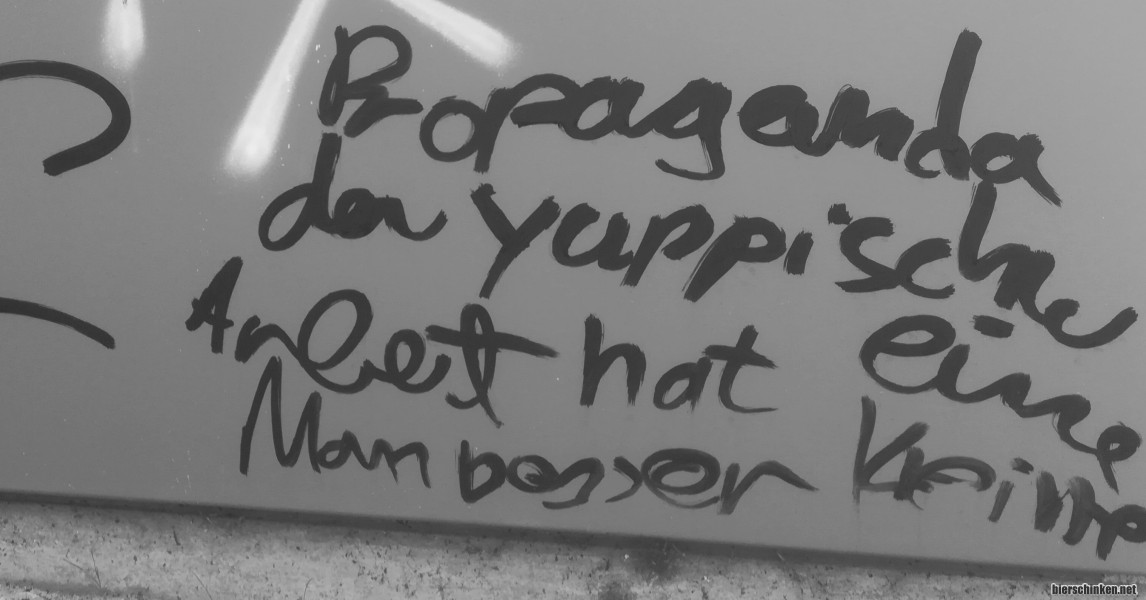 Propaganda
der yuppische
Arbeit hat eine
Man besser keine
bierschinken.net